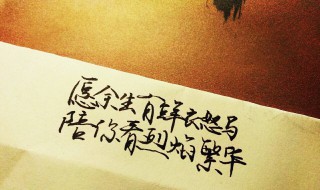 愿余生有鲜衣怒马
陪你看烈焰繁华